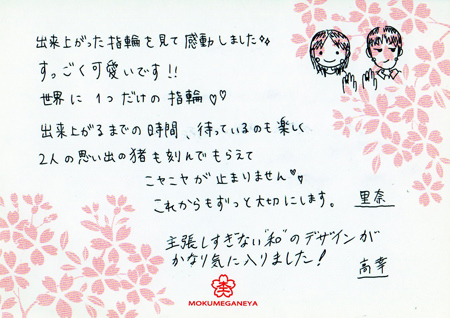 出来上がった指輪を見て感動しました✧✧
すっごく可愛いです!!
世界に1つだけの指輪♡♡
出来上がるまでの時間、待っているのも楽しく
2人の思い出の猪も刻んでもらえて
ニヤニヤが止まりません♡♡
これからもずっと大切にします。 里奈
主張しすぎない"和"のデザインが
かなり気に入りました! 高幸
MOKUMEGANEYA